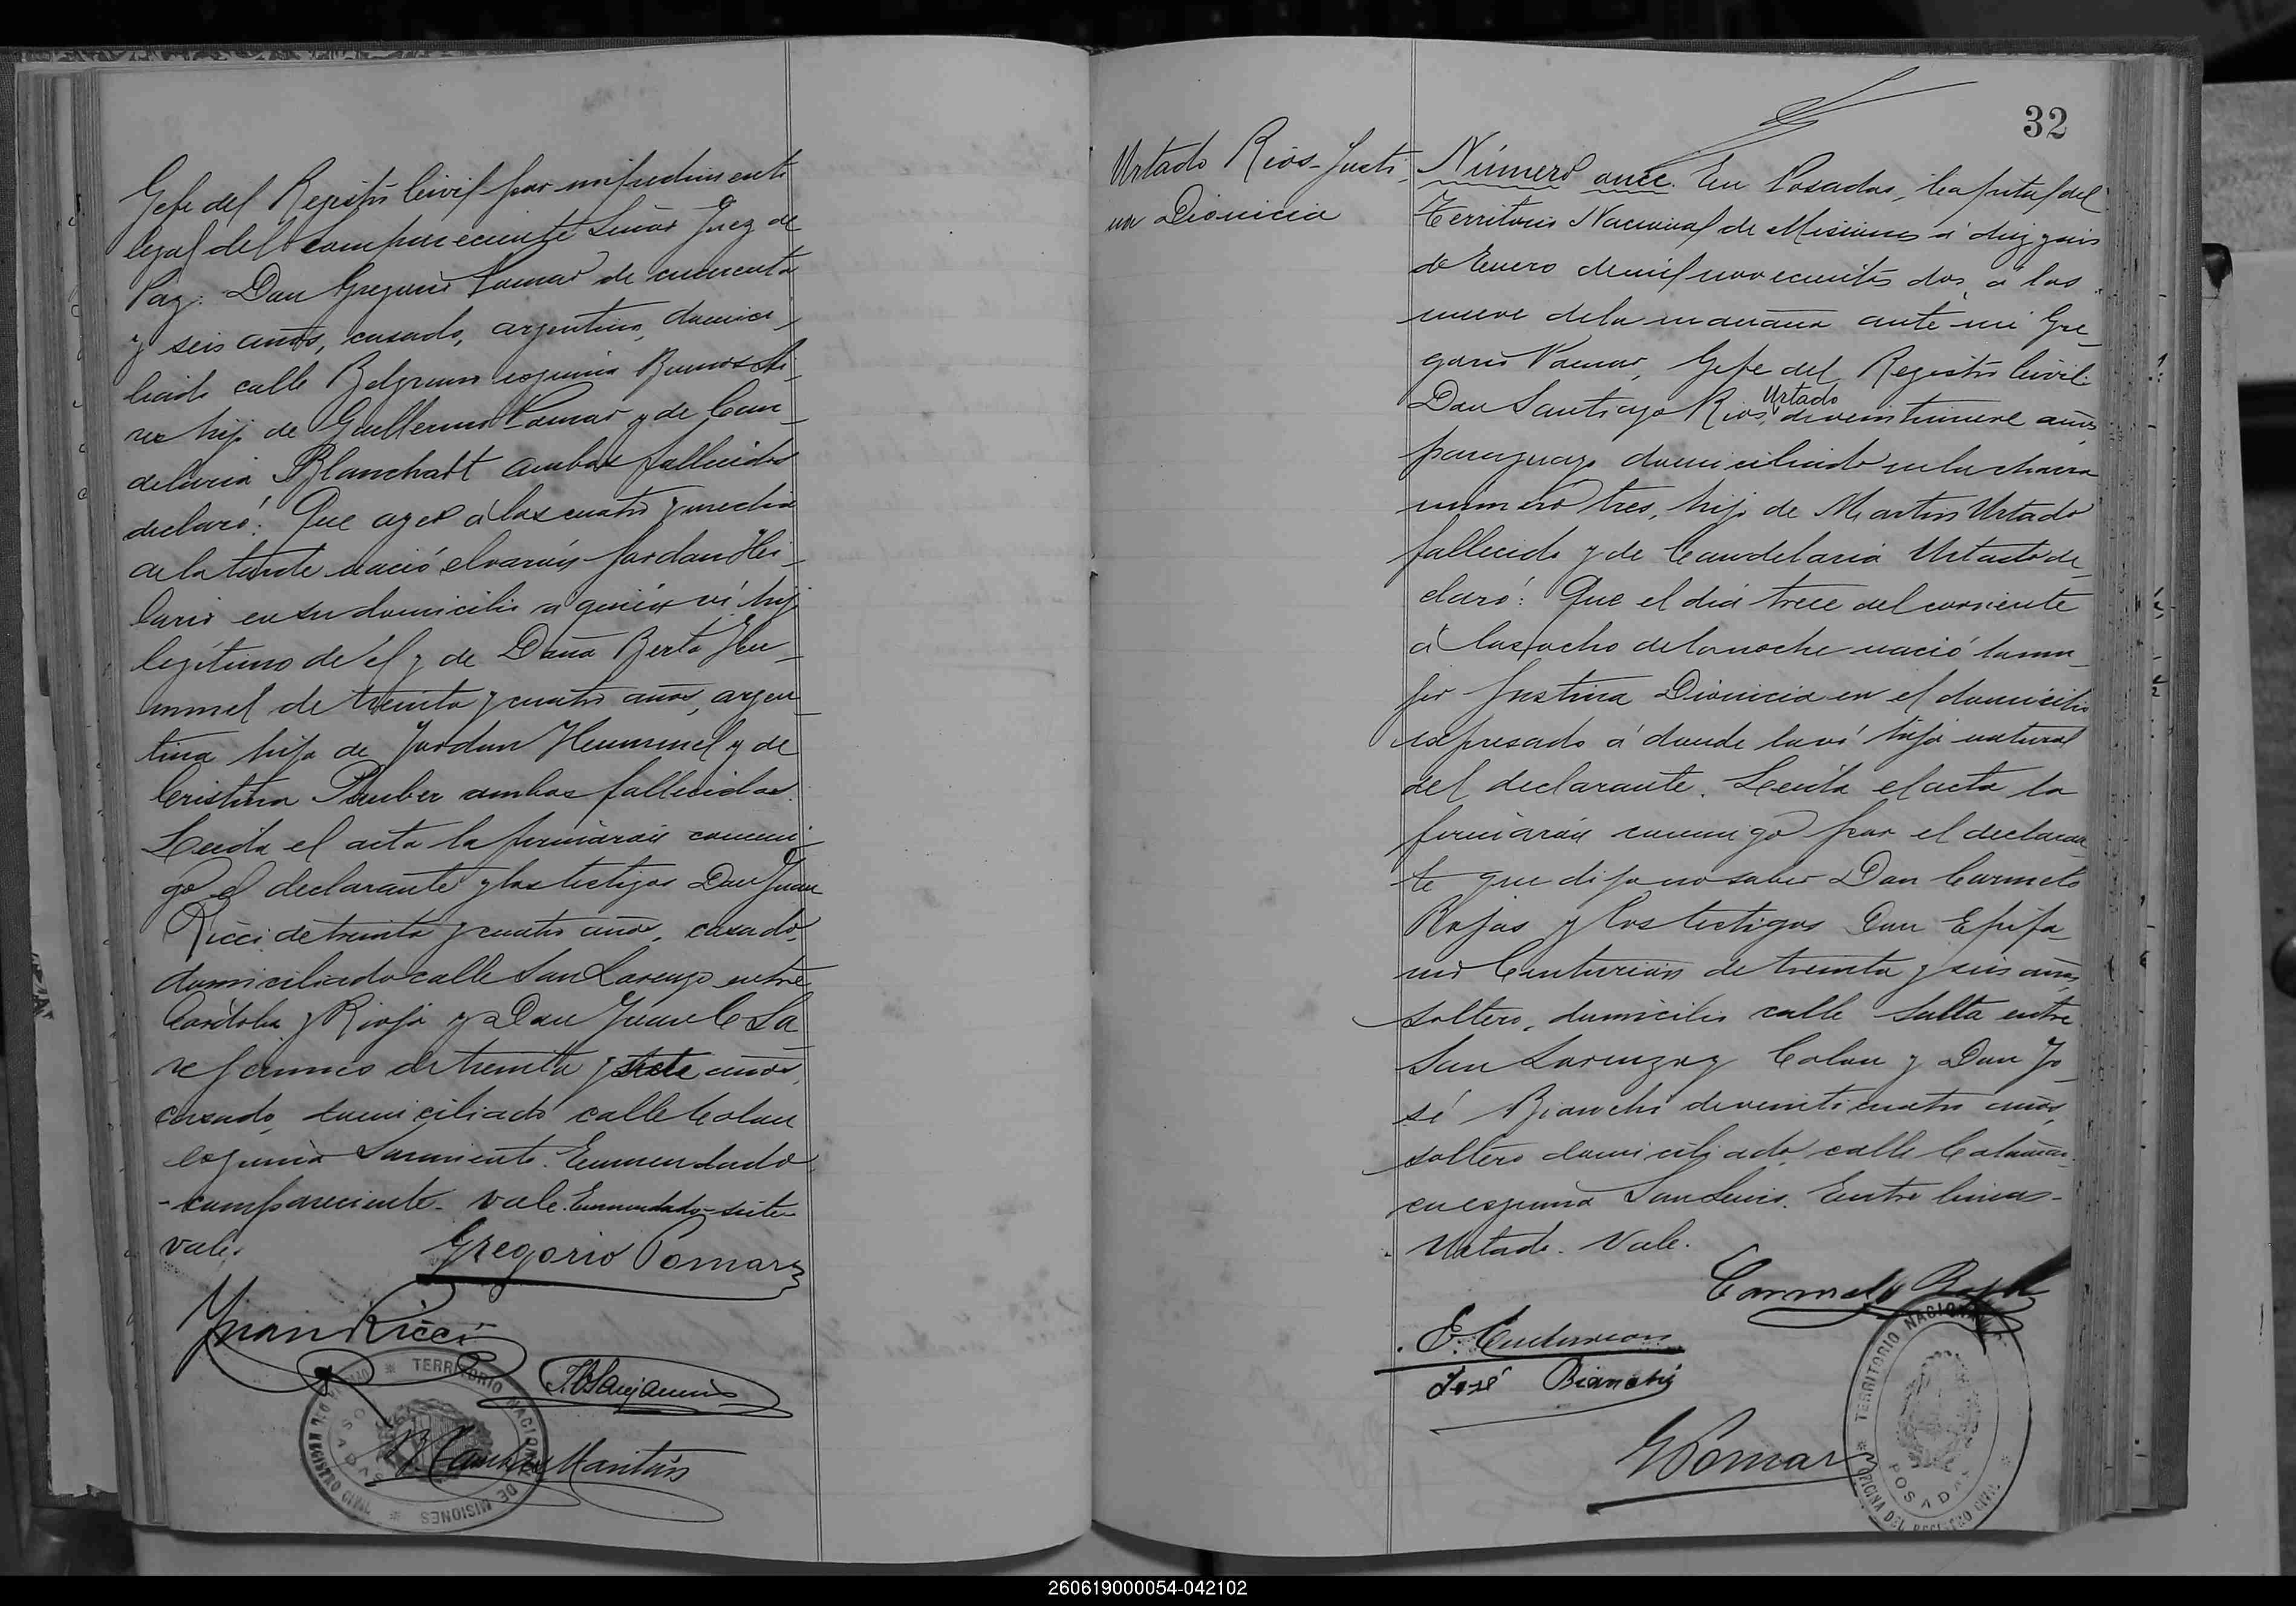 Gefe del Registro Civil por impedimento
legal del compareciente Señor Juez de
Paz: Don Gregorio Pomar de cuarenta
y seis años, casado, argentino, domici-
liado calle Belgrano esquina Buenos Ai-
res hijo de Guillermo Pomar y de Can-
delaria Blanchart ambos fallecidos
declaró: Que ayer á las cuatro y media
de la tarde nació el varón Jordan Hi-
lario en su domicilio a quien ví hijo
legítimo de él y de Doña Berta Hu-
mmel de treinta y cuatro años, argen-
tina hija de Jordan Hummel y de
Cristina ambos fallecidos.
Leida el acta la firmaron conmi-
go el declarante y los tectigos Don Juan
Ricci de treinta y cuatro años, casado,
domiciliado calle San Lorenzo entre
Cordoba y Rioja y Don Juan B Sa
de treinta y siete años,
casado, domiciliado calle Colon
esquina Sarmiento. Enmendado
- compareciente - vale. Enmendado - siete
vale.
Gregorio Pomar
Juan Ricci
TERRITORIO NACIONAL DE MISIONES
OFICINA DEL REGISTRO CIVIL
POSADAS
32
Urtado Rios - Justi-
na Dionicia
Número once. En Posadas, Capital del
Territorio Nacional de Misiones á diez y seis
de Enero de mil novecientos dos, á las
nueve de la mañana ante mi Gre-
gorio Pomar, Gefe del Registro Civil:
Don Santiago Rios, Urtado de veintinueve años,
paraguayo domiciliado en la chacra
número tres, hijo de Martin Urtado
fallecido y de Candelaria Urtado de-
claró: Que el dia trece del corriente
á las ocho de la noche nació la mu-
jer Justina Dionicia en el domicilio
expresado á donde la ví hija natural
del declarante. Leida el acta la
firmarón conmigo por el declaran-
te que dijo no saber Don Carmelo
Rojas y los tectigos Don Epifa-
nio Centurión de treinta y seis años,
soltero, domicilio calle Salta entre
San Lorenzo y Colon y Don Jo-
sé Bianchi de veinticuatro años,
soltero domiciliado calle Catamar-
ca esquina San Luis. Entre lineas -
Urtado. Vale.
Carmelo Rojas
E. Centurion
José Bianchi
G Pomar
TERRITORIO NACIONAL
OFICINA DEL REGISTRO CIVIL
POSADAS
260619000054-042102